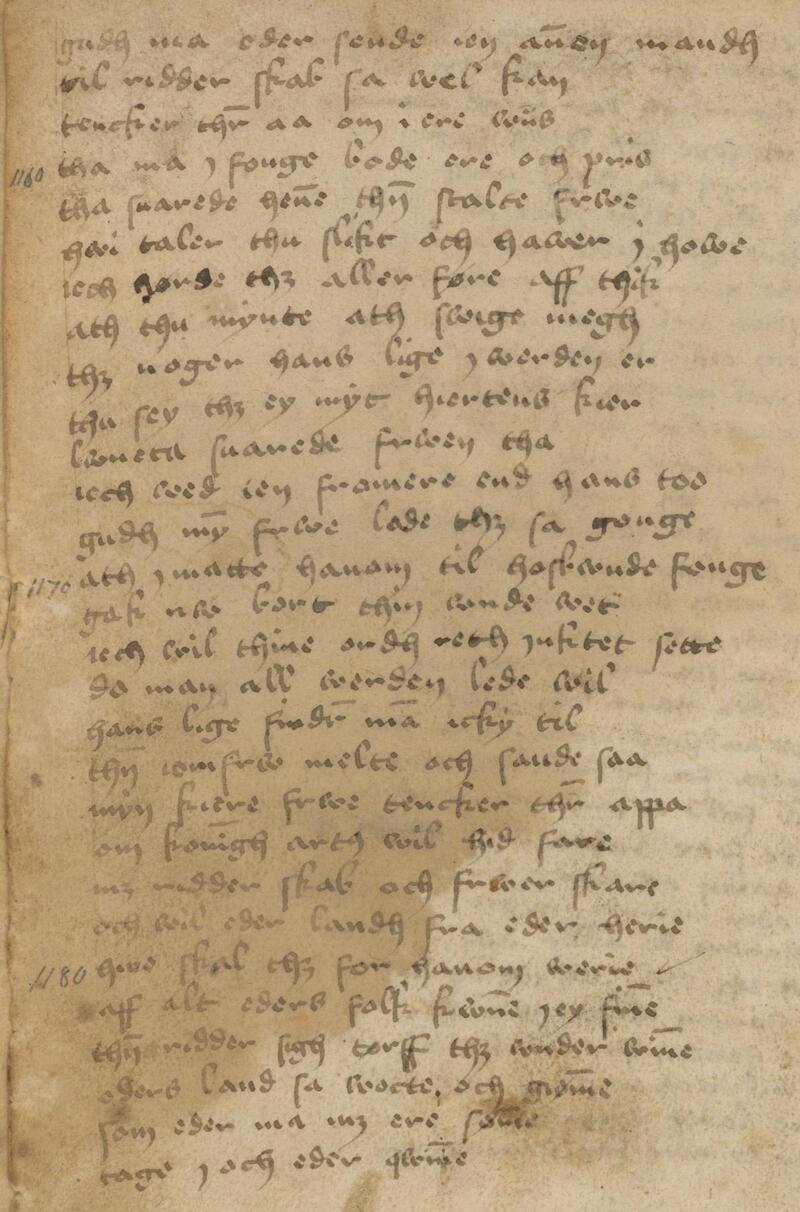 gudh ma eder sende ien an̄en mandh
til ridder skab sa wel kan
tencker thr̄ aa om i ere wiiss
1160 tha ma j fonge bode ere och pris
tha suarede hen̄e thn̄ stalte frwe
hwi taler thu slikt och hawer j howe
iech hørde thz aller føre aff thik
ath thu mynte ath swige megh
thz noger hans lige j werden er
thu sey thz ey myt hiertens kier
lwneta suarede frwen tha
iech wed ien fromere end hans too
gudh my̅ frwe lade thz sa gonge
1170 ath j matte hanom til hoskwnde fonge
gak nw bort thin wnde wet
iech wil thine ordh reth jnktet sette
do man all werden lede wil
hans lige findr̄ ma̅ icky til
thn̄ iomfrw melte och sande saa
myn kiere frwe tencker thr̄ appa
om kon̄igh arth wil hid fare
mz ridder skab och frwer skare
och wil eder landh fra eder herie
1180 hwo skal thz for hanom werie
aff alt eders folk kwn̄e j ey fin̄e
thn̄ ridder sigh torff thz wnder win̄e
eders land sa wocte och giøm̄e
som eder ma mz ere søm̄e
tage j och eder qwin̄e